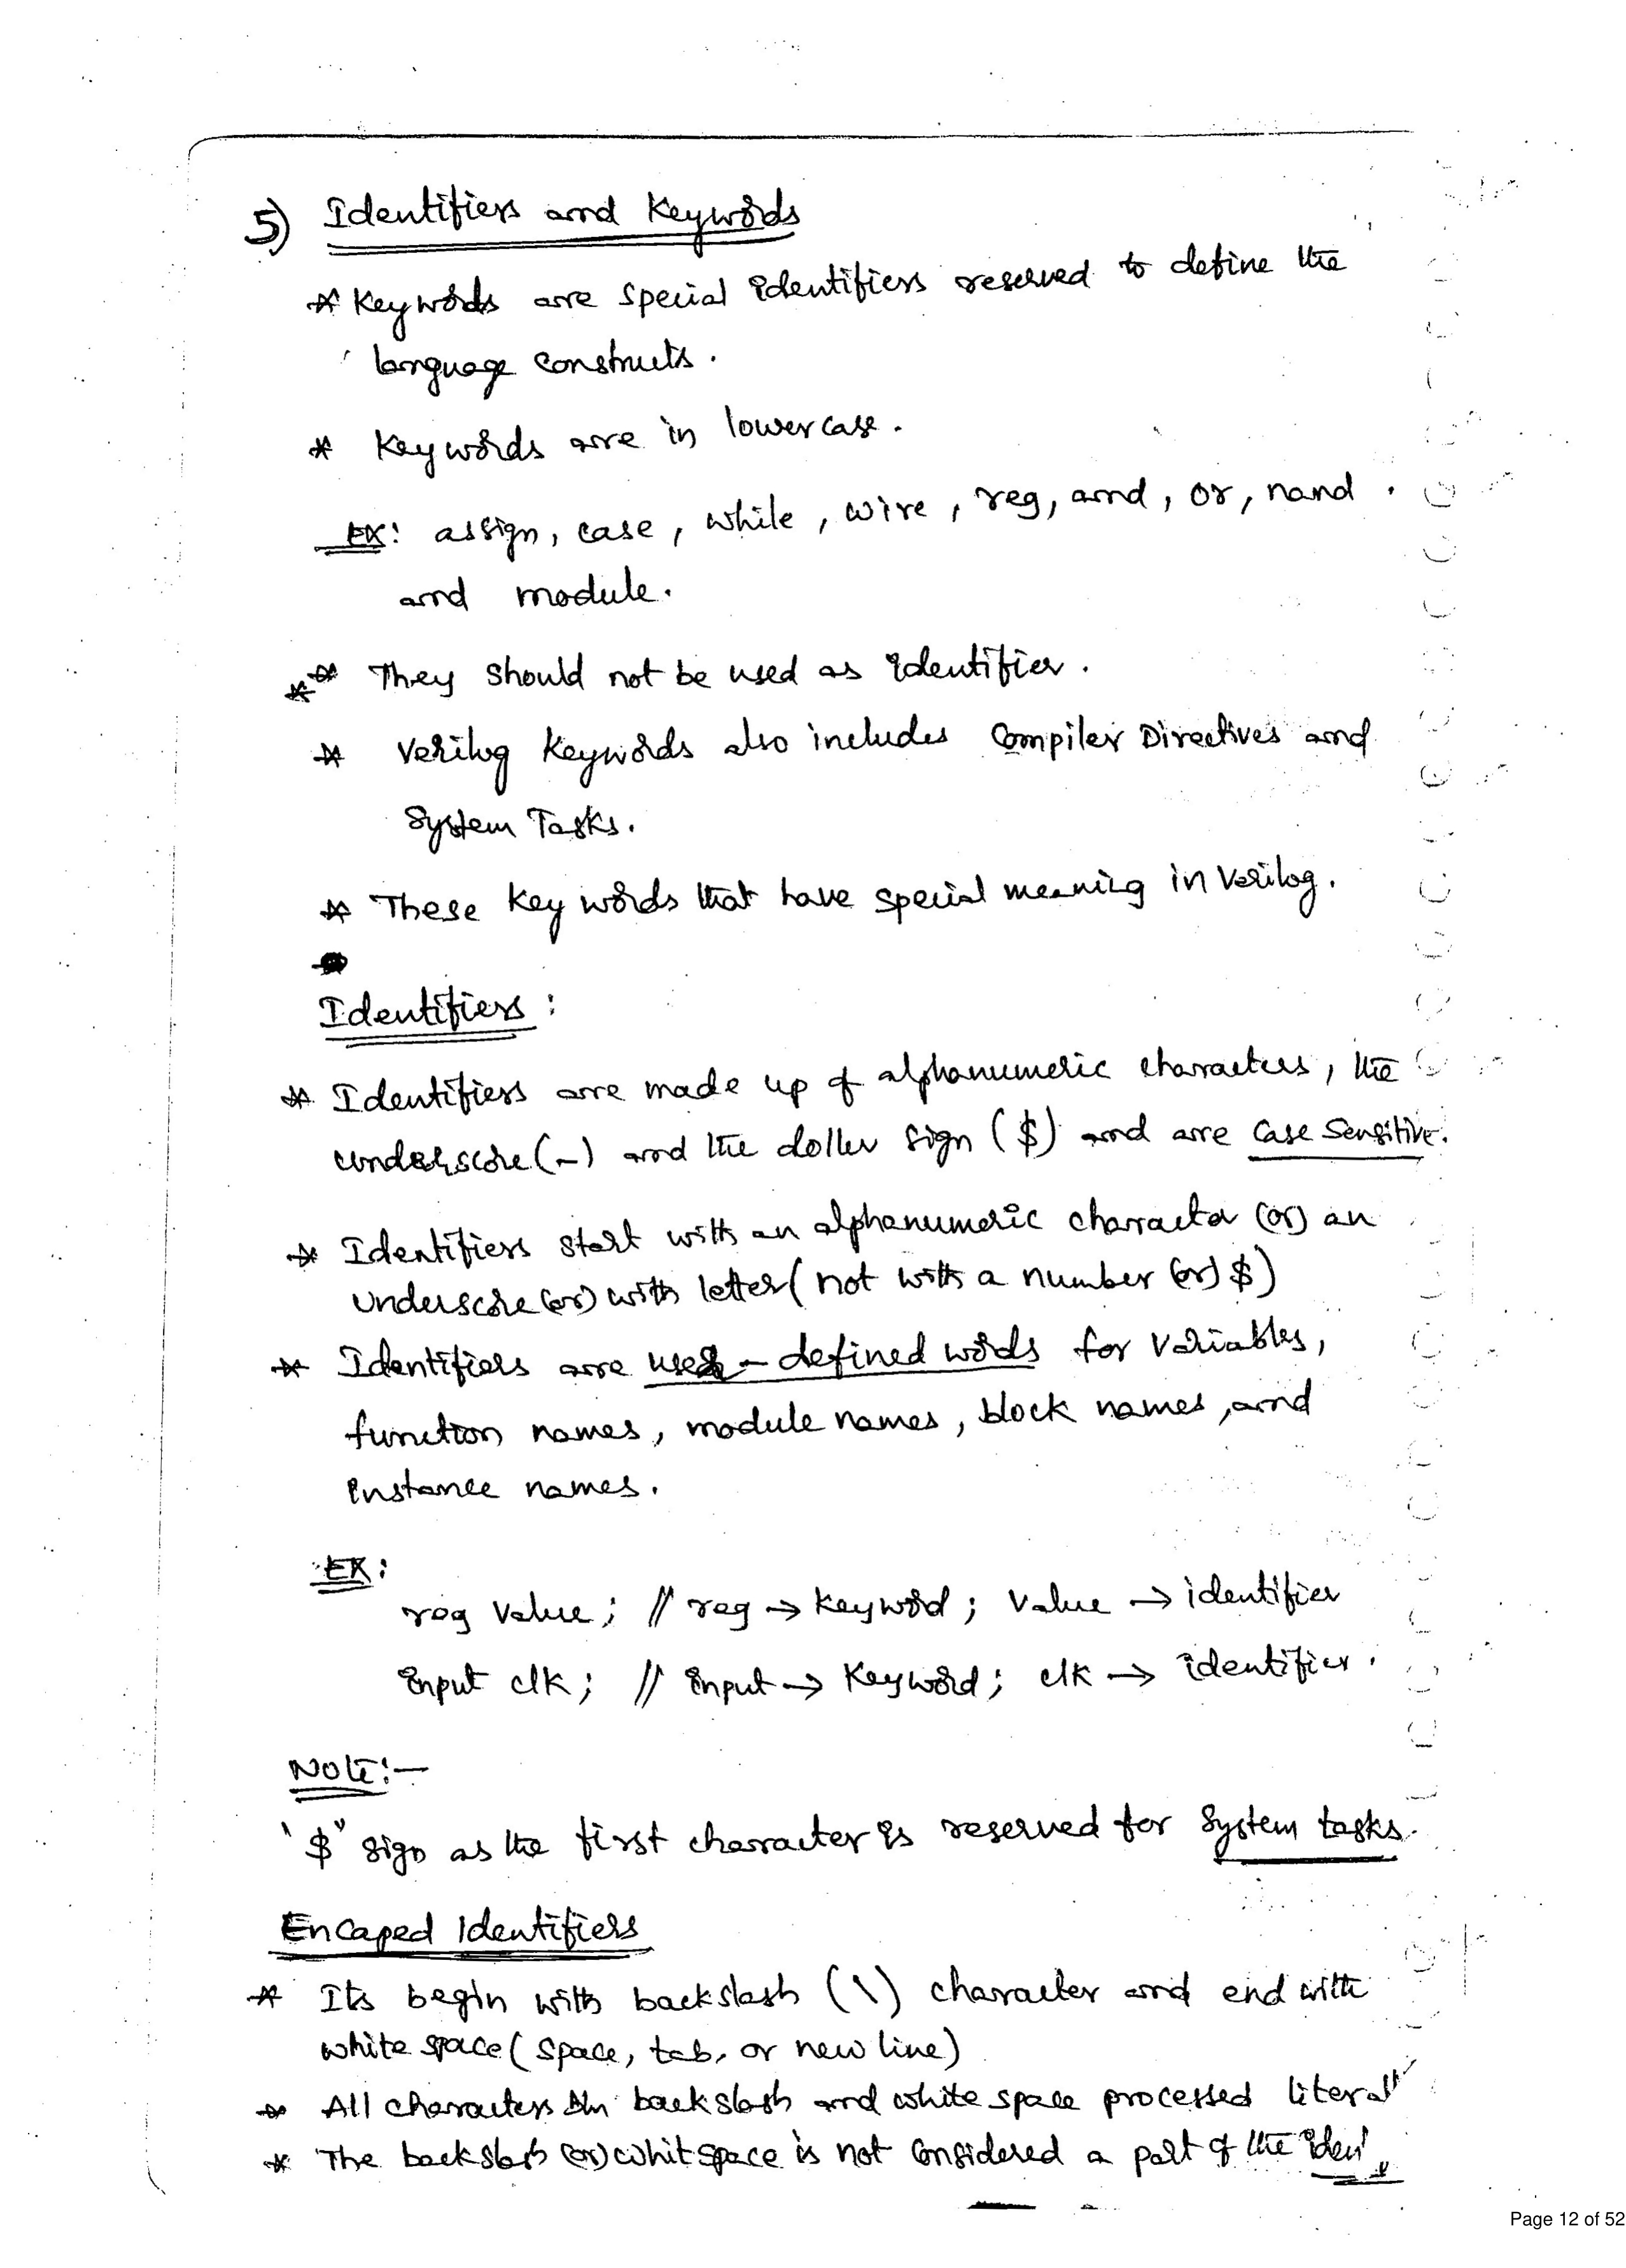 5) Identifiers and Keywords
* Keywords are special identifiers reserved to define the
language constructs.
* Keywords are in lowercase.
EX: assign, case, while, wire, reg, and, or, nand.
and module.
** They should not be used as identifier.
* Verilog Keywords also includes Compiler Directives and
System Tasks.
* These key words that have special meaning in Verilog.
Identifiers :
* Identifiers are made up of alphanumeric characters, the
underscore (_) and the doller sign ($) and are case sensitive.
* Identifiers start with an alphanumeric character (or) an
underscore (or) with letter (not with a number (or) $)
* Identifiers are user-defined words for variables,
function names, module names, block names, and
instance names.
EX:
reg value; // reg → keyword; value → identifier
input clk; // input → keyword; clk → identifier.
NOTE:-
'$" sign as the first character is reserved for system tasks.
Encaped Identifiers
* Its begin with backslash (\) character and end with
white space (space, tab, or new line)
* All characters b/n backslash and white space processed literal
* The backslash (or) whitspace is not considered a part of the iden
Page 12 of 52